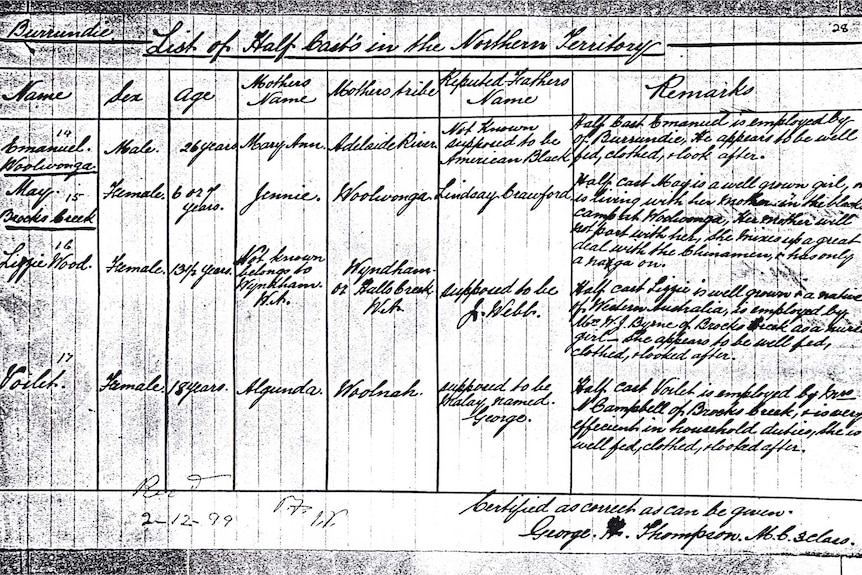 Burrundie
List of Half Cast's in the Northern Territory
28
Name
Sex
Age
Mothers
Name
Mothers tribe
Reputed Fathers
Name
Remarks
14
Emanuel.
Woolwonga.
Male.
26 years
Mary Ann.
Adelaide River.
Not Known
supposed to be
American Black
Half Cast Emanuel is employed by
of Burrundie, He appears to be well
fed, clothed, & look after.
May. 15
Brocks Creek
Female.
6 or 7
years.
Jennie.
Woolwonga.
Lindsay Crawford
Half cast May is a well grown girl,
is living with her mother in the blacks
camp at Woolwonga, her mother will
not part with her, she mixes up a great
deal with the Chinamen, & has only
a naga on.
16
Lizzie Wood.
Female.
13½ years.
Not known
belongs to
Wyndham
W.A.
Wyndham
or Halls Creek
W.A.
supposed to be
J. Webb.
Half cast Lizzie is well grown & a native
of Western Australia, is employed by
Mrs W.J. Byrne of Brocks Creek as a nurse
girl – she appears to be well fed,
clothed, & looked after.
17
Voilet.
Female.
18 years.
Algunda.
Woolnah.
supposed to be
Malay, named
George.
Half cast Voilet is employed by Mrs
McCampbell of Brocks Creek, & is very
effecient in household duties, she is
well fed, clothed, & looked after.
Rec'd
2-12-99
Certified as correct as can be given.
George. Thompson. M.C. 3 class.